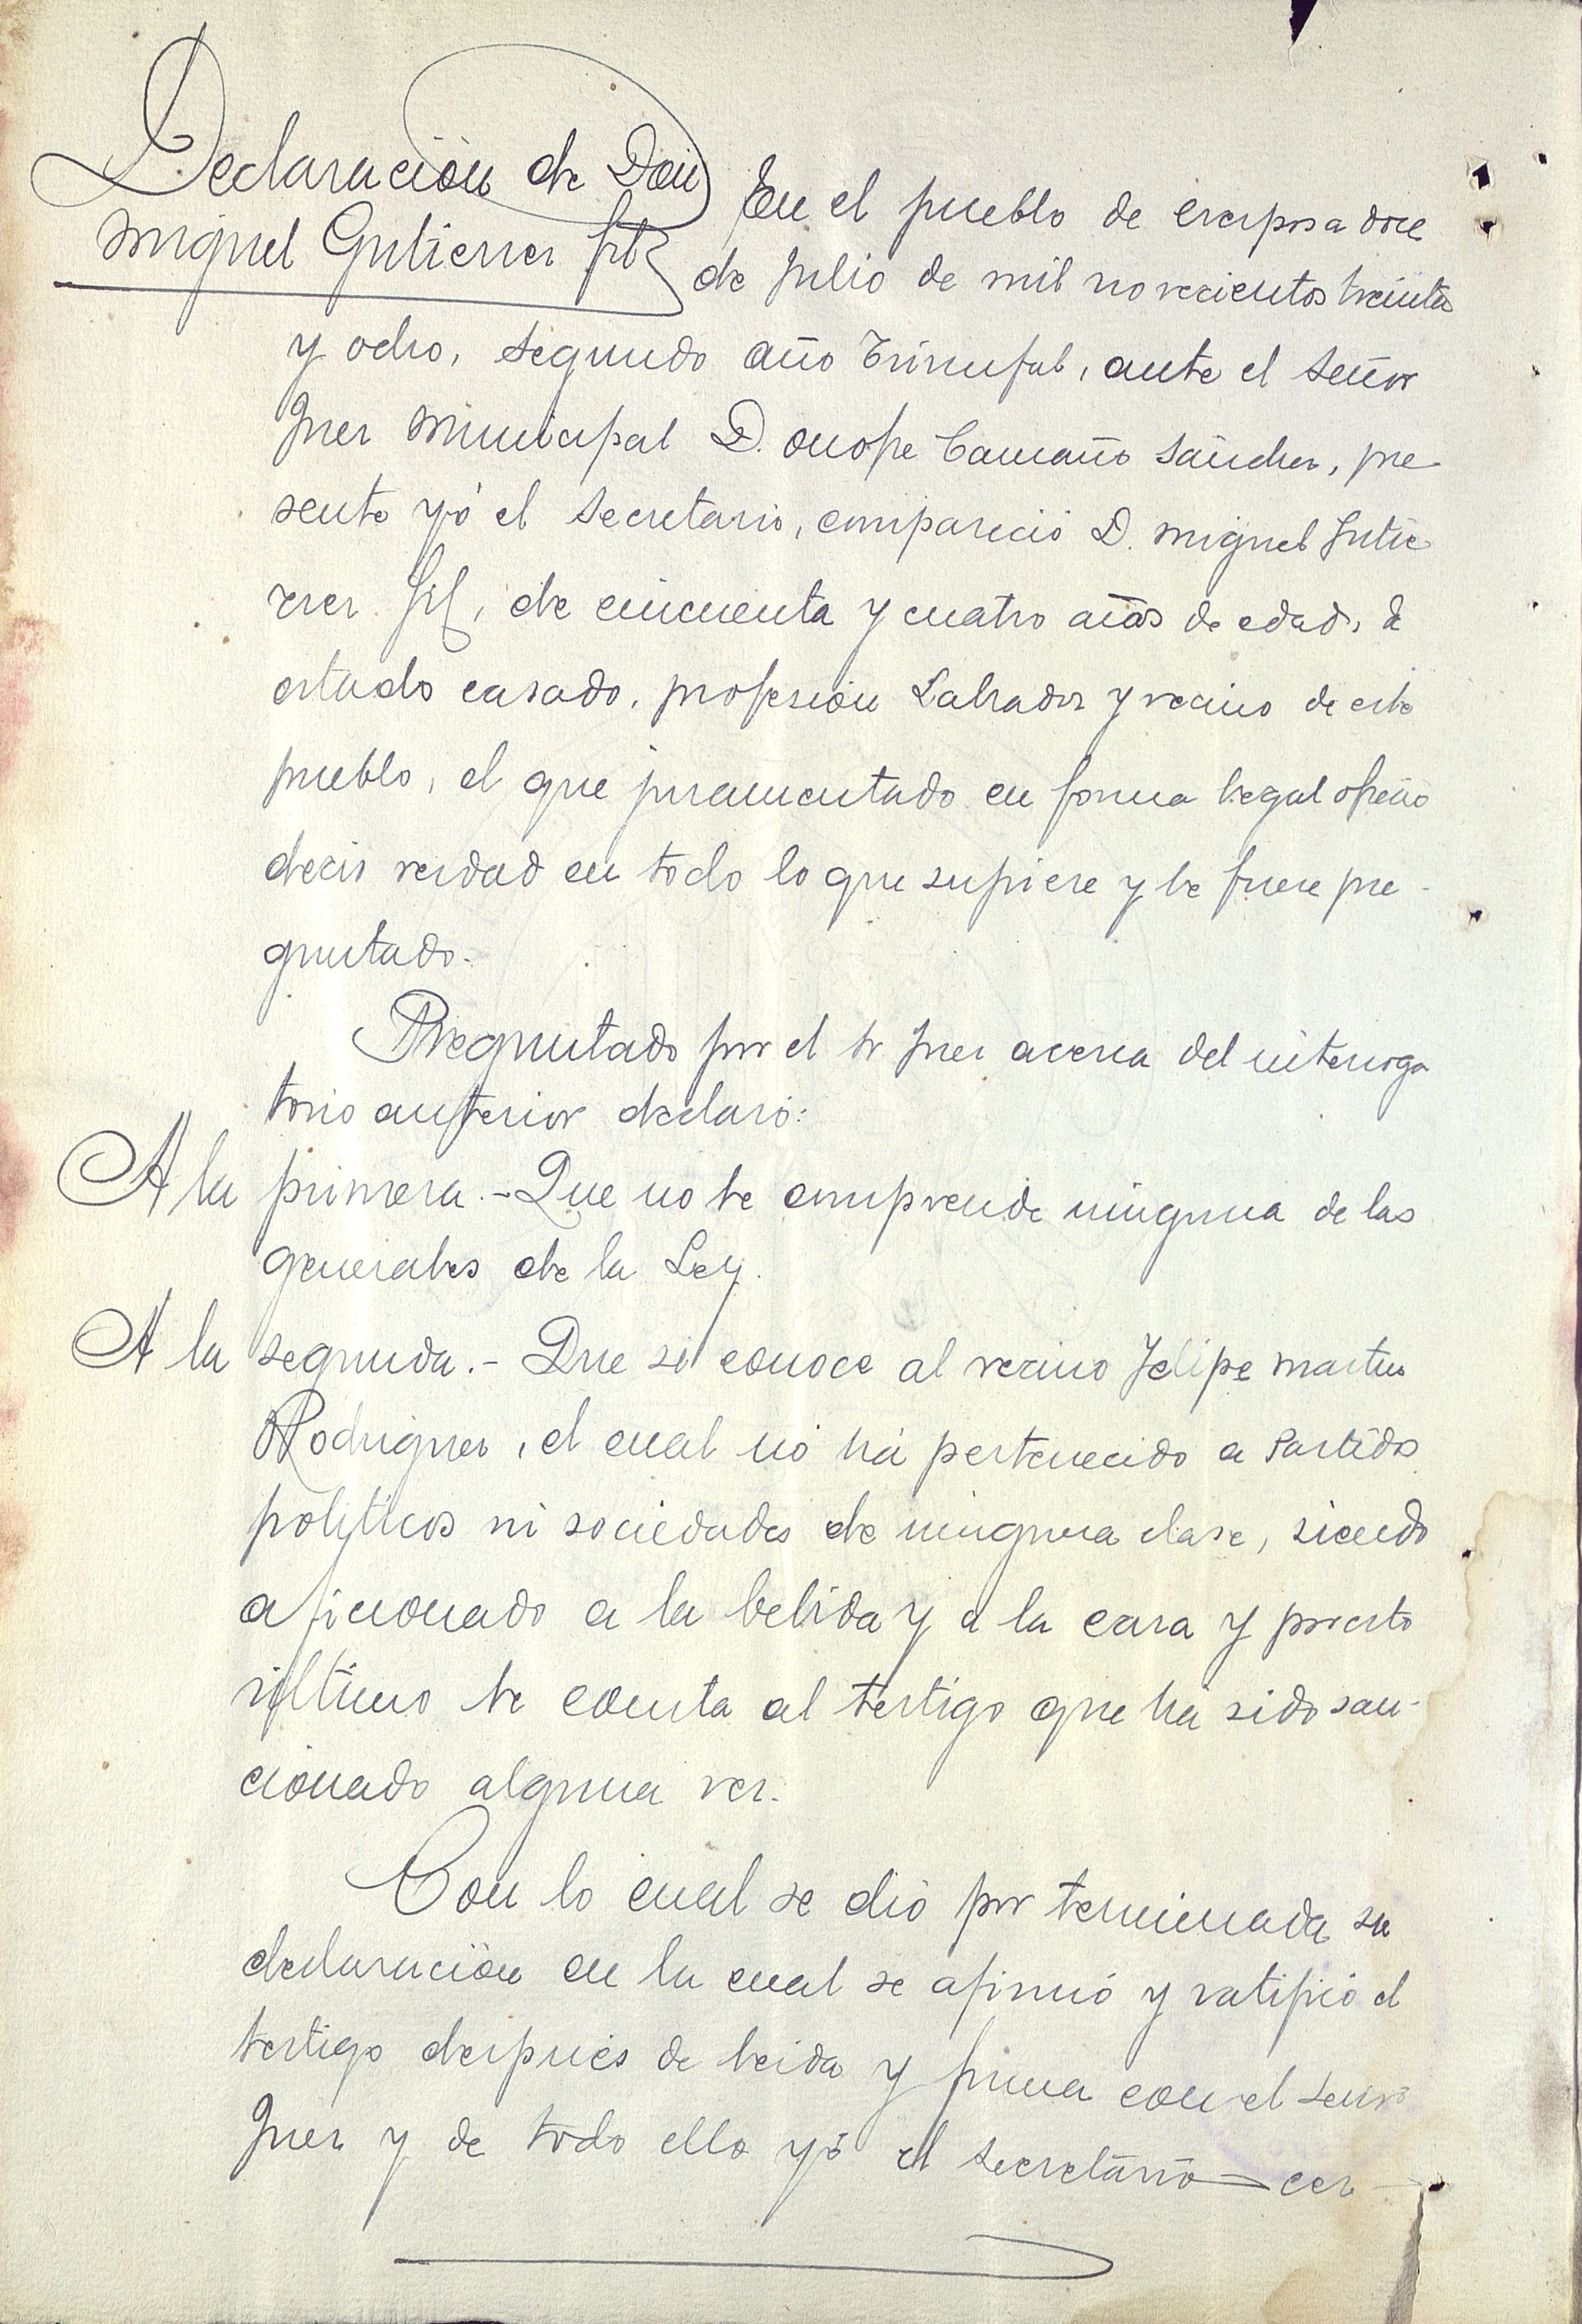 Declaración de Don
Miguel Gutierrez Gil
En el pueblo de Crespos a doce
de Julio de mil novecientos treinta
y ocho, segundo año Triunfal, ante el Señor
Juez Municipal D. Onofre Camaño Sánchez, pre
sente yó el Secretario, compareció D. Miguel Gutie
rrez Gil, de cincuenta y cuatro años de edad, de
estado casado, profesión Labrador y vecino de este
pueblo, el que juramentado en forma legal ofreció
decir verdad en todo lo que supiere y le fuere pre-
guntado.
Preguntado por el Sr Juez acerca del interroga
torio anterior declaró:
A la primera.- Que no le comprende ninguna de las
generales de la Ley.
A la segunda.- Que sí conoce al vecino Felipe Martin
Rodriguez, el cual nó há pertenecido a Partidos
politicos ni sociedades de ninguna clase, siendo
aficionado a la bebida y a la caza y por esto
último le consta al testigo que há sido san-
cionado alguna vez.
Con lo cual se dió por terminada su
declaración en la cual se afirmó y ratificó el
testigo después de leida y firma con el Señor
Juez y de todo ello yó el Secretario cer